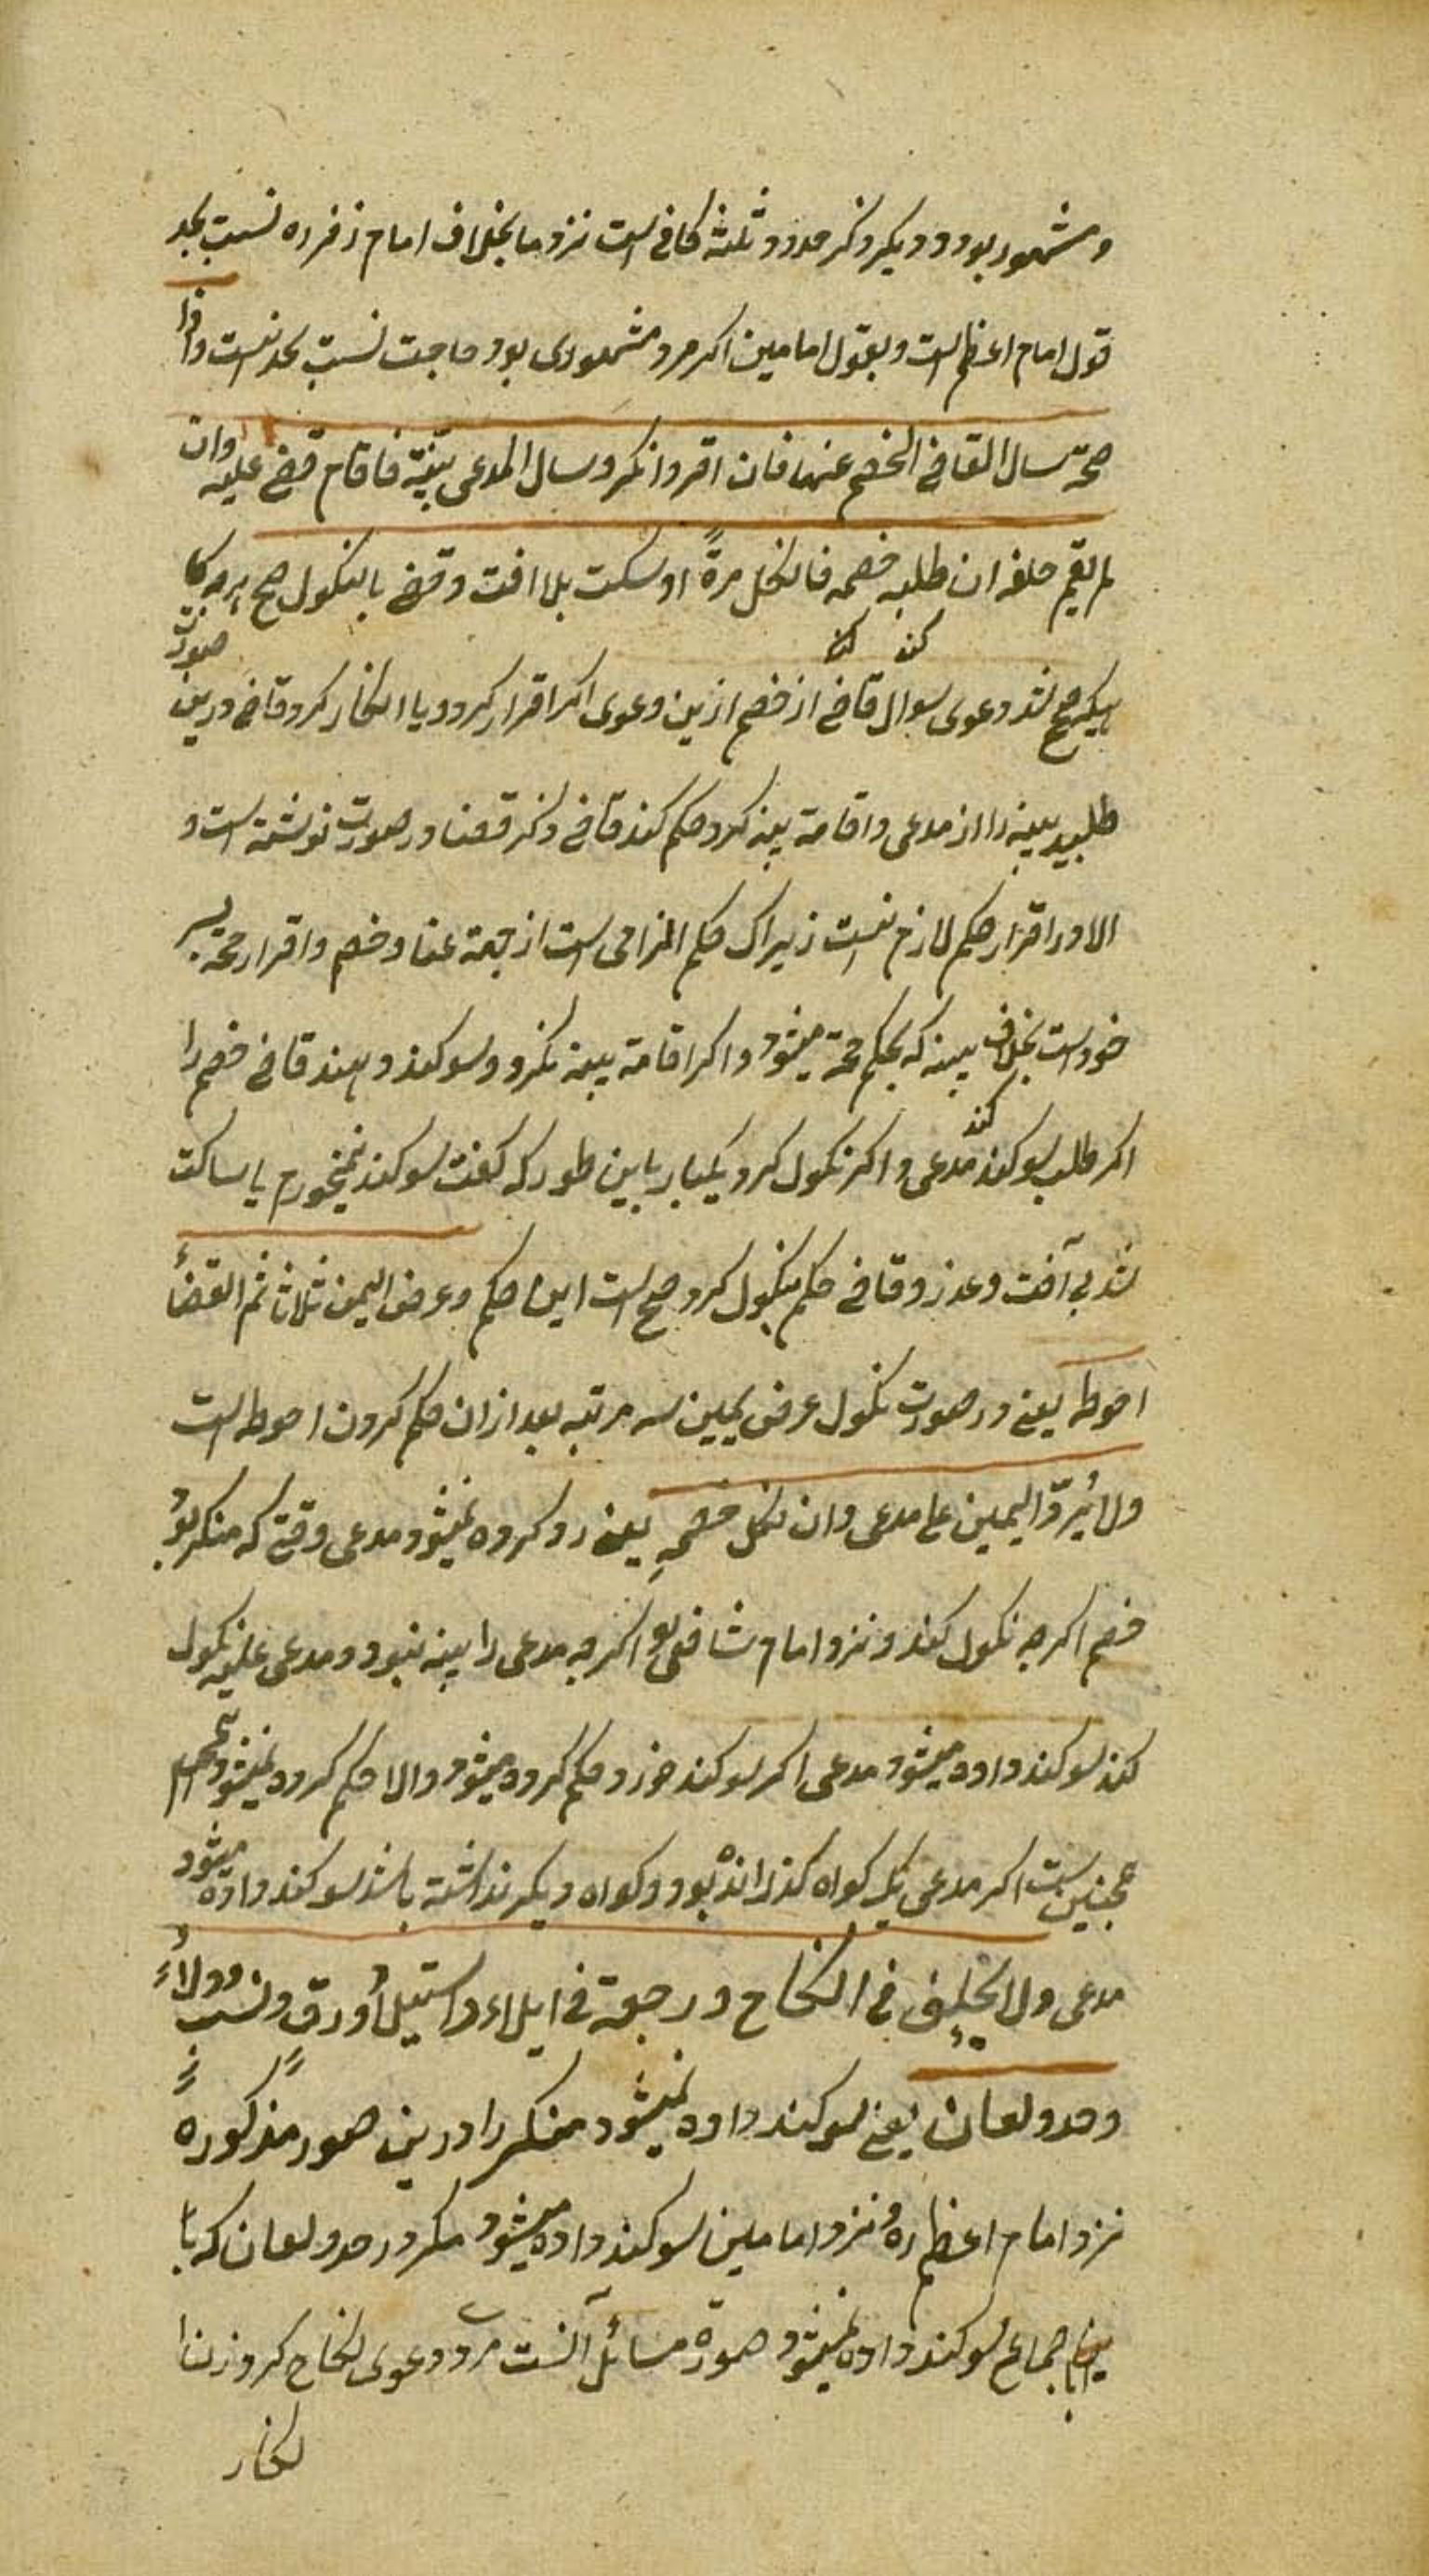 ومشهور بود و دیکر ذکر حدود ثلثه کافی است نزد ما بخلاف امام زفر ره نسبت بجد
قول امام اعظم است و بقول امامین اکر مرد مشهوری بود حاجت نسبت بجد نیست واذا
صحّت سال القاضی الخصم عنها فان اقر وانکر وسال المدعی بیّنة فاقام قضی علیه وان
لم یقم حلفه ان طلبه خصمه فان نکل مرةً او سکت بلا افت وقضی بالنکول صح
صحیح شد دعوی سوال کند قاضی از خصم ازین دعوی اکر اقرار کرد و یا انکار کرد قاضی درین صورت
طلبید بینه را از مدعی و اقامة بینه کرد حکم کند قاضی ذکر قضا در صورت نوشته است و
الا در اقرار حکم لازم نیست زیراک حکم الزامی است از جهة عناد خصم و اقرار حجة بر
خود است بخلاف بینه که بحکم حجة میشود و اکر اقامة بینه نکرد و سوکند دهند قاضی خصم را
اکر طلب سوکند کند مدعی و اکر نکول کرد یکبار باین طور که کفت سوکند نمیخورم یا ساکت
شد بی آفت و عذر و قاضی حکم بنکول کرد صحیح است این حکم وعرض الیمین ثلاثا ثم القضاء
احوط یعنی در صورت نکول عرض یمین سه مرتبه بعد ازان حکم کردن احوط است
ولا یُردّ الیمین علی مدعی وان نکل خصمهِ یعنی رد کرده نمیشود مدعی وقتی که منکر بود
خصم اکرچه نکول کند و نزد امام شافعی اکرچه مدعی را بینه نبود و مدعی علیه نکول
کند سوکند داده میشود مدعی اکر سوکند خورد حکم کرده میشود والا حکم کرده نمیشود
همچنین است اکر مدعی یک کواه کذرانده بود و کواه دیکر نداشته باشد سوکند داده میشود
مدعی ولا یحلف فی النکاح ورجعة فی ایلاء واستیلاد ورق ونسب وولاءٍ
وحد ولعان یعنی سوکند داده نمیشود منکر را درین صور مذکوره
نزد امام اعظم ره و نزد امامین سوکند داده میشود مکر در حد و لعان که با
اجماع سوکند داده نمیشود صورة مسائل آنست مرد دعوی نکاح کرد زن را
انکار